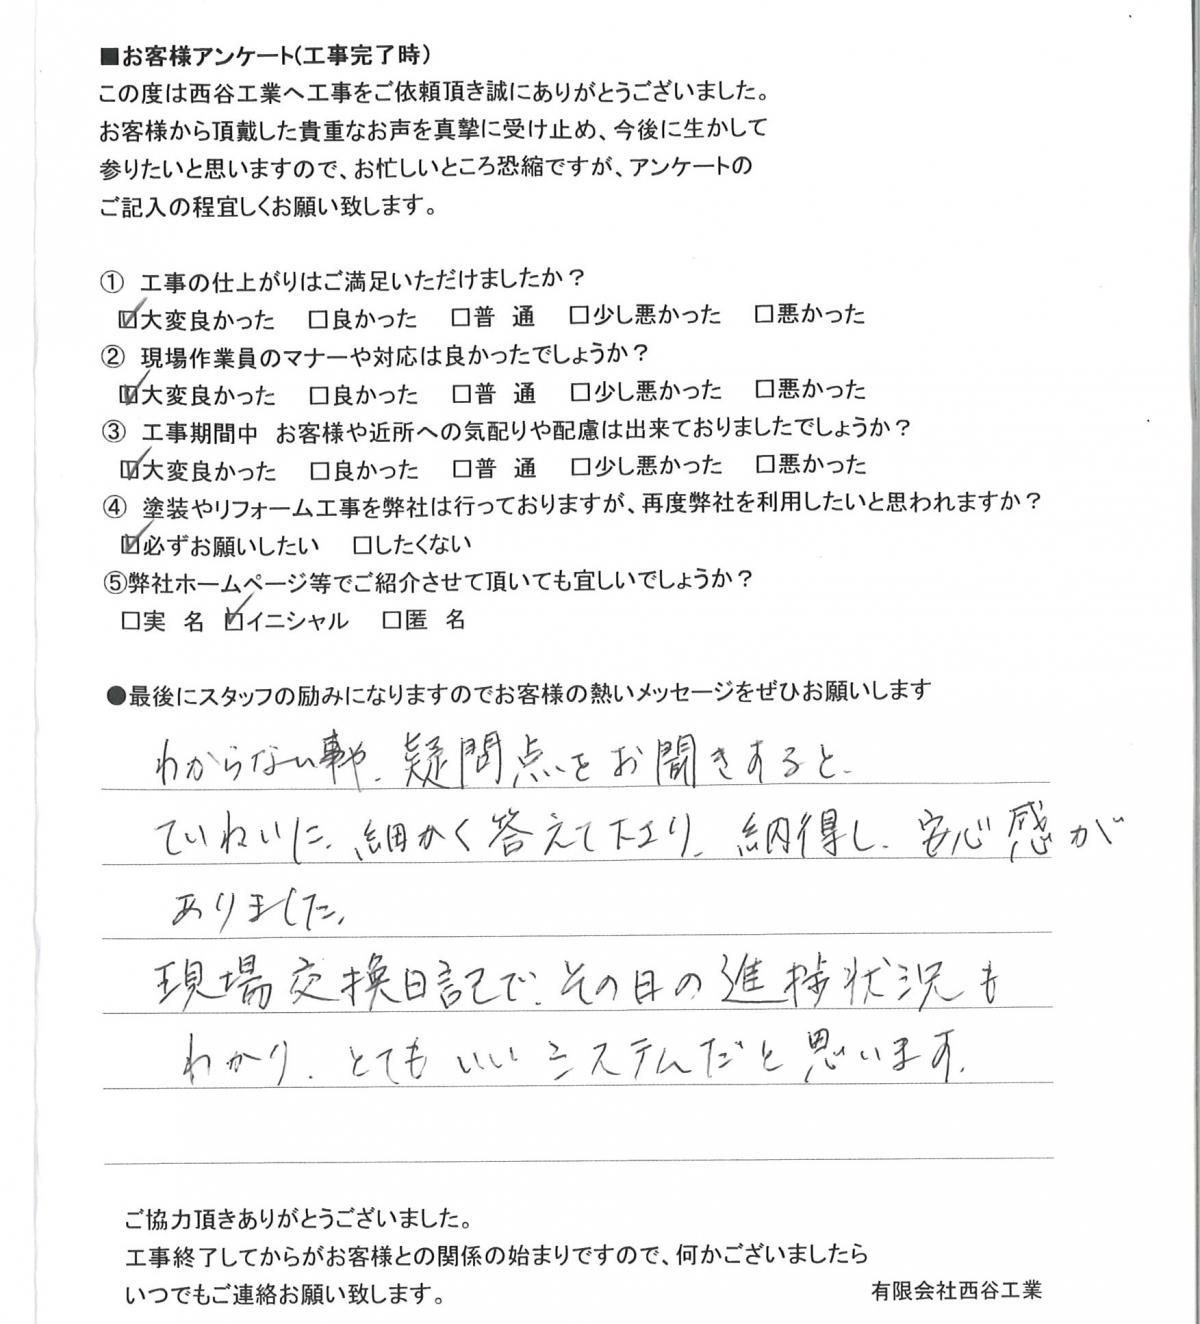 ■お客様アンケート(工事完了時)
この度は西谷工業へ工事をご依頼頂き誠にありがとうございました。
お客様から頂戴した貴重なお声を真摯に受け止め、今後に生かして
参りたいと思いますので、お忙しいところ恐縮ですが、アンケートの
ご記入の程宜しくお願い致します。
① 工事の仕上がりはご満足いただけましたか?
☑大変良かった □良かった □普 通 □少し悪かった □悪かった
② 現場作業員のマナーや対応は良かったでしょうか?
☑大変良かった □良かった □普 通 □少し悪かった □悪かった
③ 工事期間中 お客様や近所への気配りや配慮は出来ておりましたでしょうか?
☑大変良かった □良かった □普 通 □少し悪かった □悪かった
④ 塗装やリフォーム工事を弊社は行っておりますが、再度弊社を利用したいと思われますか?
☑必ずお願いしたい □したくない
⑤弊社ホームページ等でご紹介させて頂いても宜しいでしょうか?
□実 名 ☑イニシャル □匿 名
●最後にスタッフの励みになりますのでお客様の熱いメッセージをぜひお願いします
わからない事や、疑問点をお聞きすると、
ていねいに、細かく答えて下さり、納得し、安心感が
ありました。
現場交換日記で、その日の進捗状況も
わかり、とてもいいシステムだと思います。
ご協力頂きありがとうございました。
工事終了してからがお客様との関係の始まりですので、何かございましたら
いつでもご連絡お願い致します。
有限会社西谷工業